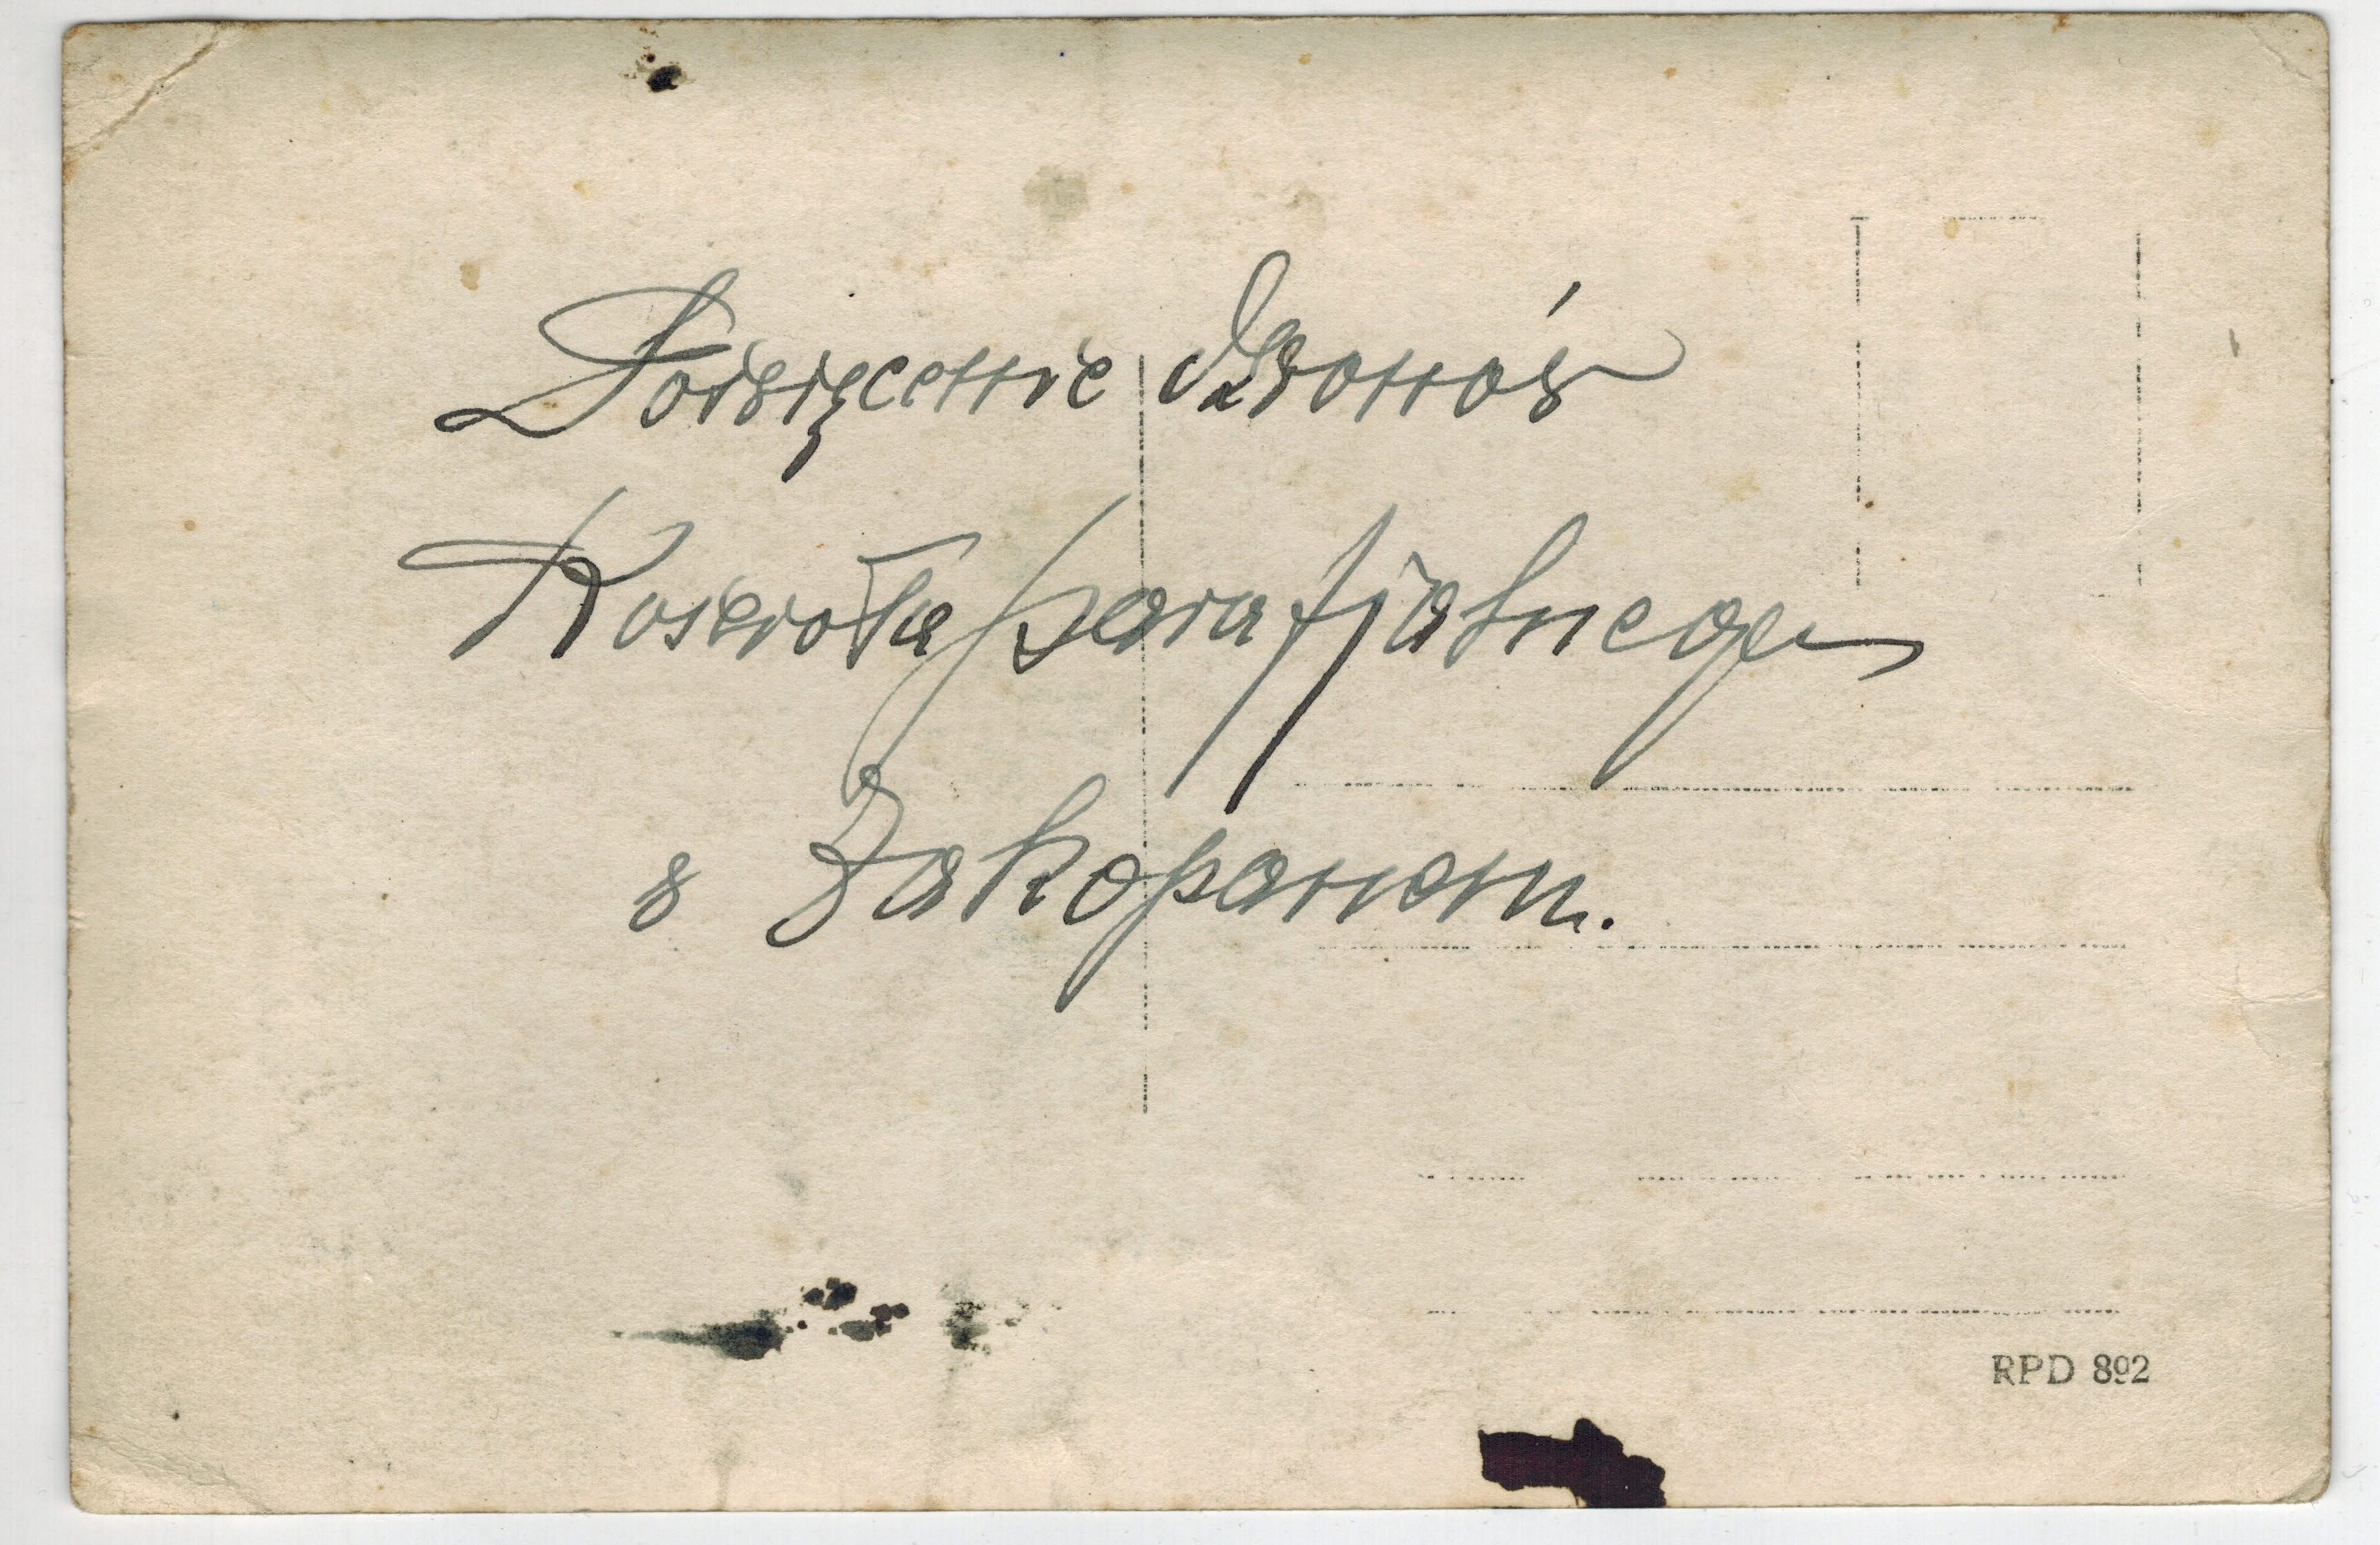 Poświęcenie dzwonów
Kościoła parafjalnego
w Zakopanem.
RPD 892